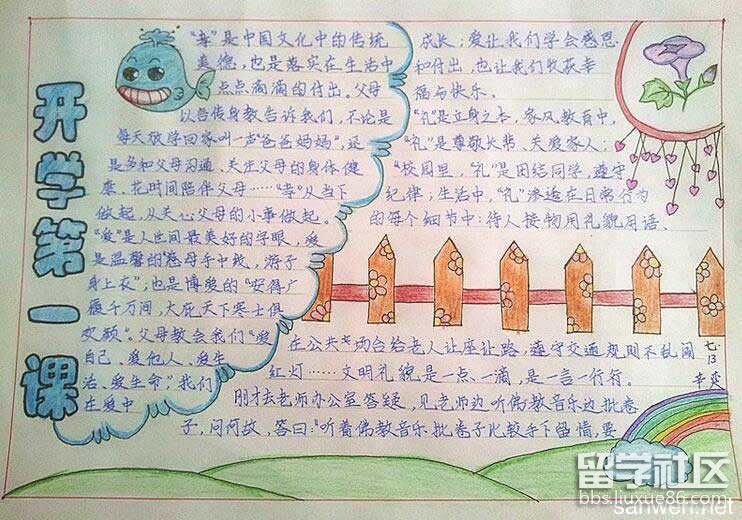 开学第一课
"孝"是中国文化中的传统
美德,也是落实在生活中
点点滴滴的付出。父母
以言传身教告诉我们,不论是
每天放学回家叫一声"爸爸妈妈",还
是多和父母沟通、关注父母的身体健
康、花时间陪伴父母……"孝"从当下
做起,从关心父母的小事做起。
"爱"是人世间最美好的字眼,爱
是温馨的"慈母手中线,游子
身上衣",也是博爱的"安得广
厦千万间,大庇天下寒士俱
欢颜"。父母教会我们"爱
自己、爱他人、爱生
活、爱生命",我们
在爱中
成长;爱让我们学会感恩
和付出,也让我们收获幸
福与快乐。
"礼"是立身之本,家风教育中,
"礼"是尊敬长辈、关爱家人;
"校园里,"礼"是团结同学,遵守
纪律;生活中,"礼"渗透在日常行为
的每个细节中:待人接物用礼貌用语、
在公共场合给老人让座让路,遵守交通规则不乱闯
红灯……文明礼貌是一点一滴,是一言一行行。
刚才去老师办公室答疑,见老师边听佛教音乐边批卷
子,问何故,答曰:"听着佛教音乐批卷子比较手下留情,要
七.13
辛爽
留学社区
bbs.liuxue86.com
sanwen.net